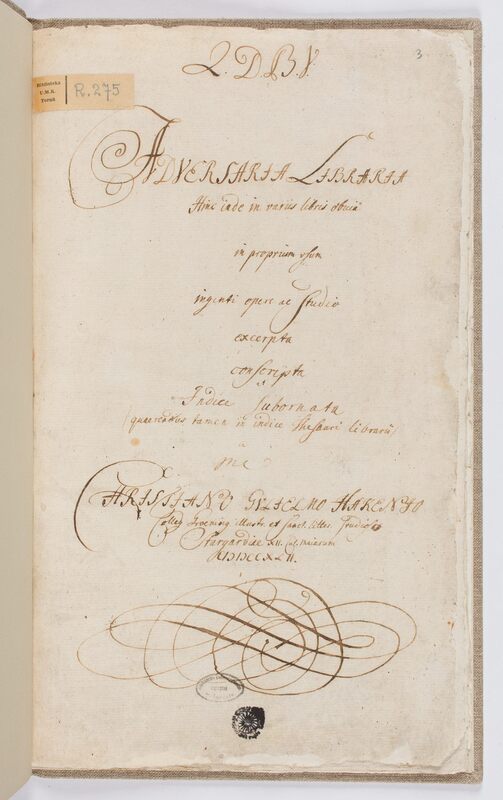 3
Q. D. B. V.
Biblioteka
U.M.K.
Toruń
R. 275
ADVERSARIA LIBRARIA
Hinc inde in variis libris obvia
in proprium vsum
ingenti opere ac Studio
excerpta
conscripta
Indice subornata
(quaerendus tamen in indice thesauri librarii)
a
me
CHRISTIANO GVLIELMO HAKENIO
Colleg. Groening. illustr. et sanct. litter. Studioso
Stargardiae XII. cal. maiarum